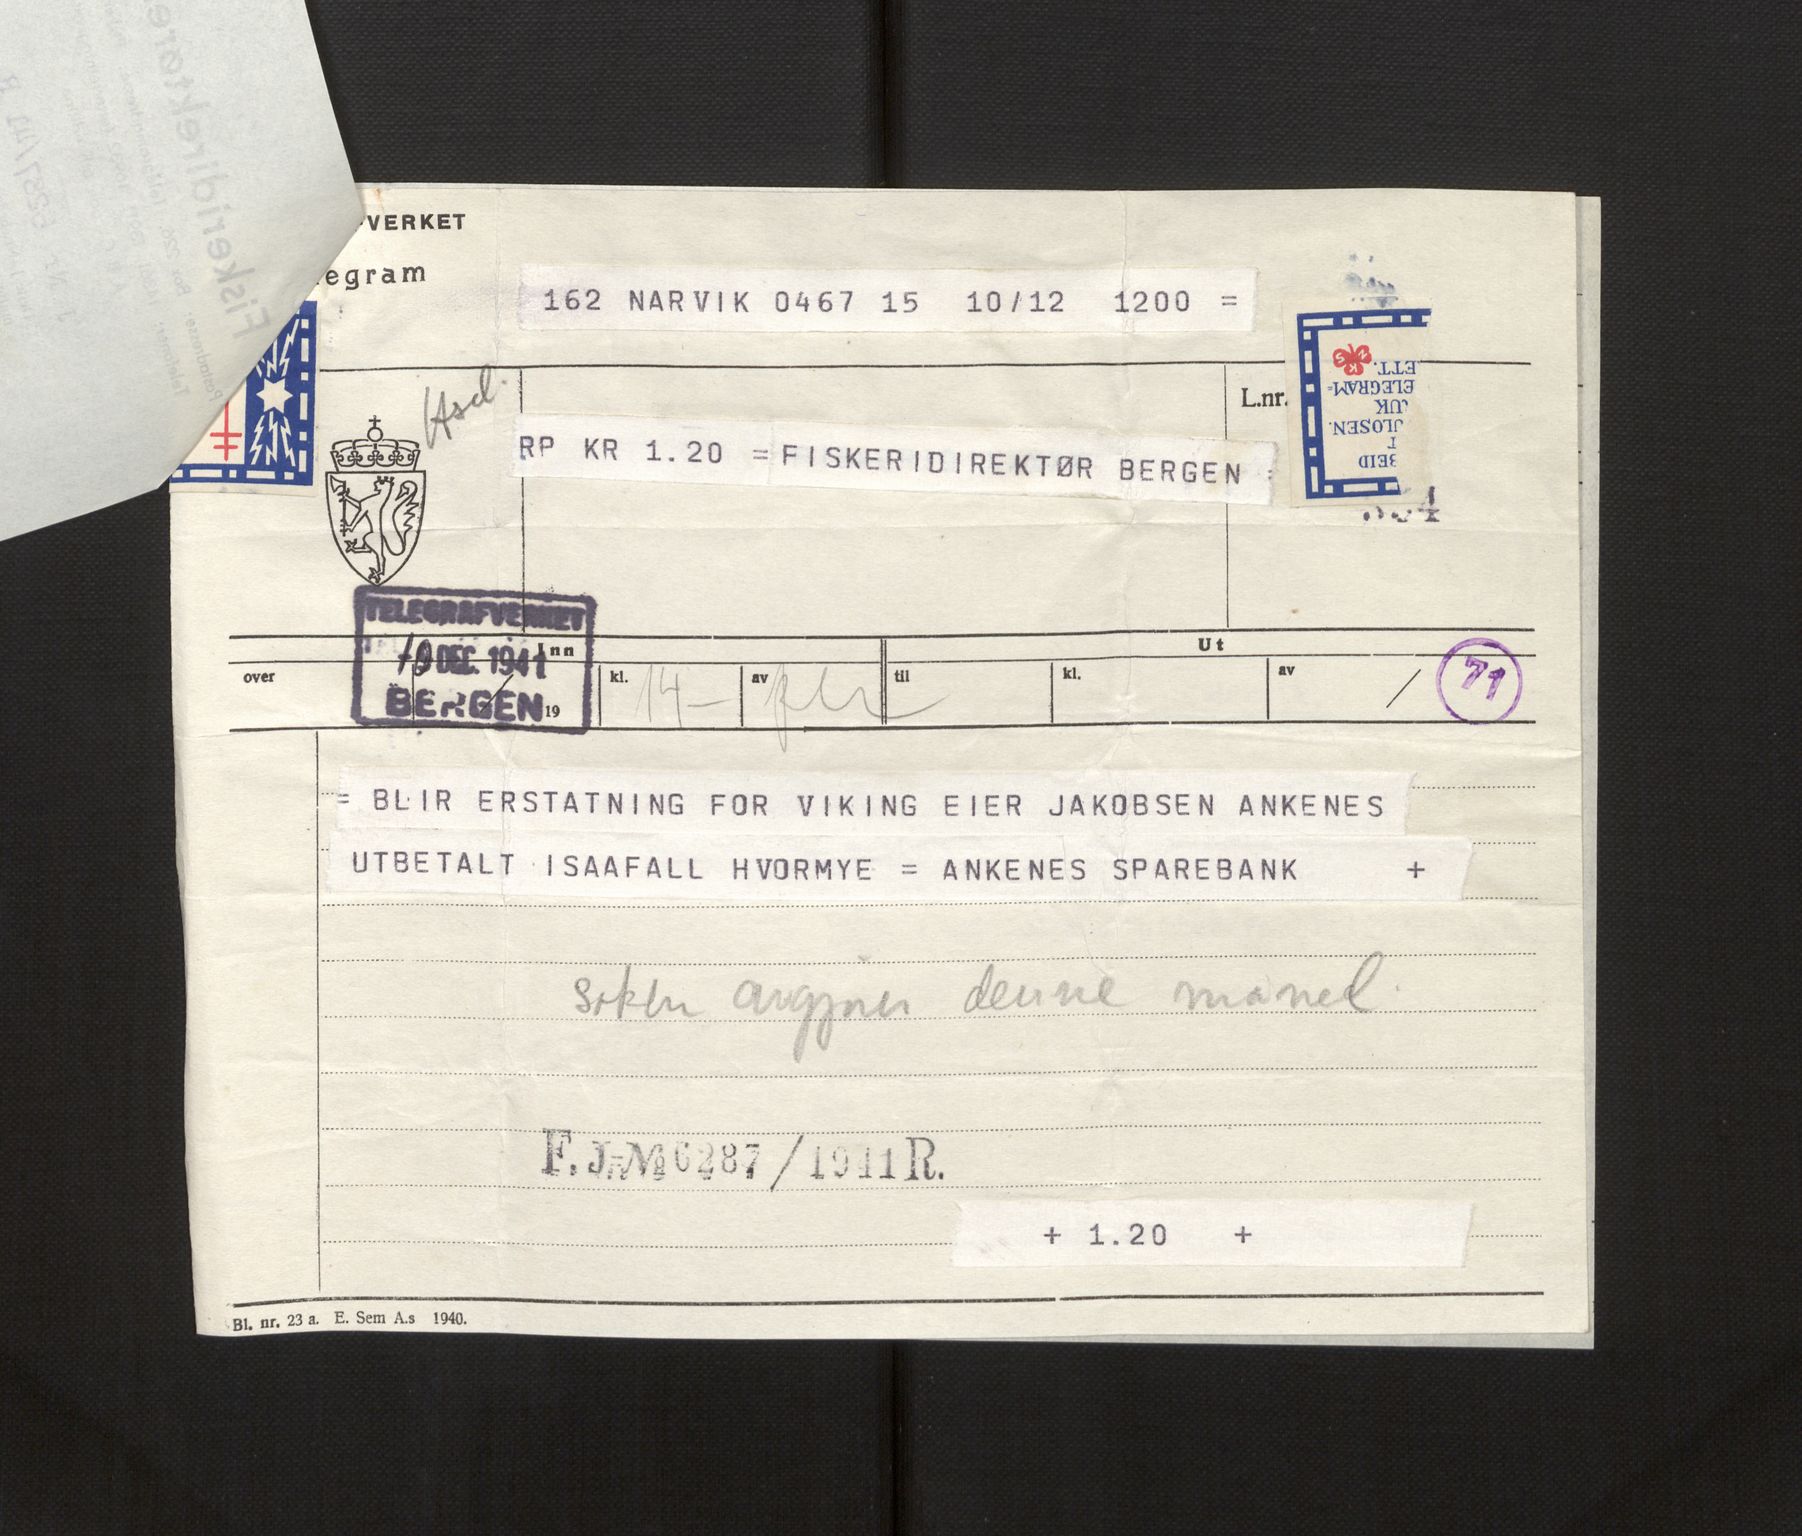 VERKET
egram
162 NARVIK 0467 15 10/12 1200 =
L.nr.
RP KR 1.20 = FISKERIDIREKTØR BERGEN =
ETT.
ELEGRAM=
UK
JLOSEN.
T
BEID
TELEGRAFVERKET
DEC. 1941
BERGEN
Inn
Ut
over
19
kl.
14-
av
til
kl.
av
/
71
= BLIR ERSTATNING FOR VIKING EIER JAKOBSEN ANKENES
UTBETALT ISAAFALL HVORMYE = ANKENES SPAREBANK +
saken avgjøres denne måned.
F. J.-№ 6287/1941 R.
+ 1.20 +
Bl. nr. 23 a. E. Sem A.s 1940.
Fiskeridirektøre